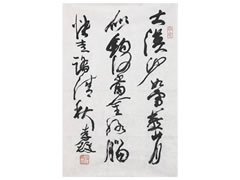 大漠沙如雪燕山月
似鉤何當金絡腦
快走踏清秋